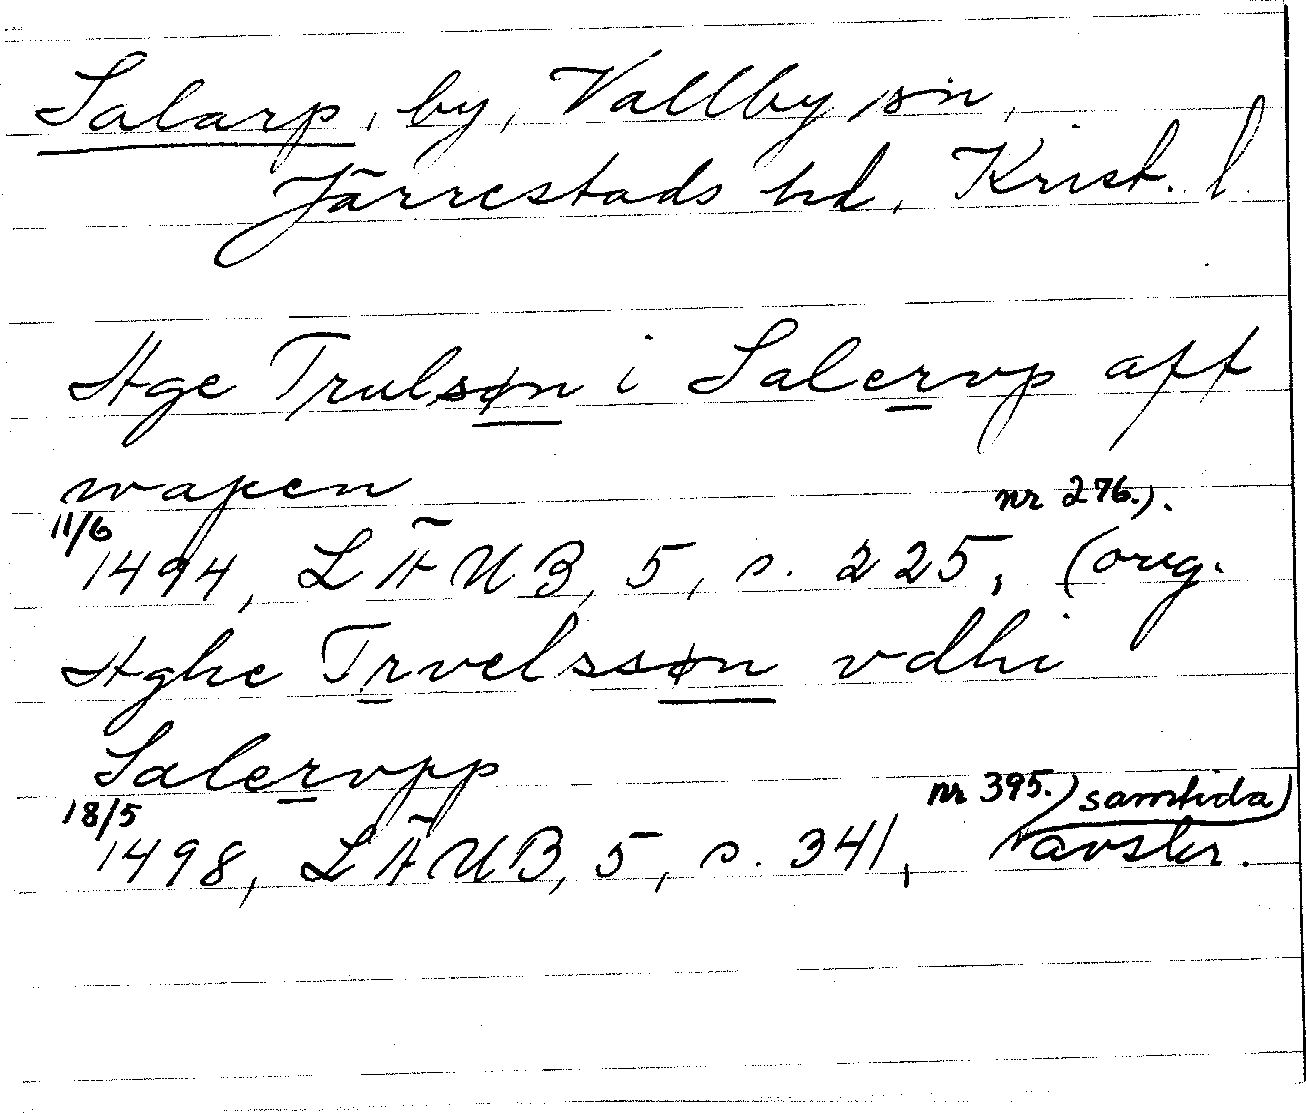 Salarp, by, Vallby sn,
Järrestads hd, Krist. l.
Age Trulsøn i Salervp aff
wapen
11/6 1494, LÄUB, 5, s. 225, (orig. nr 276.).
Aghe Trvelssøn vdhi
Salervpp
18/5 1498, LÄUB, 5, s. 341, nr 395.) (samtida avskr.)